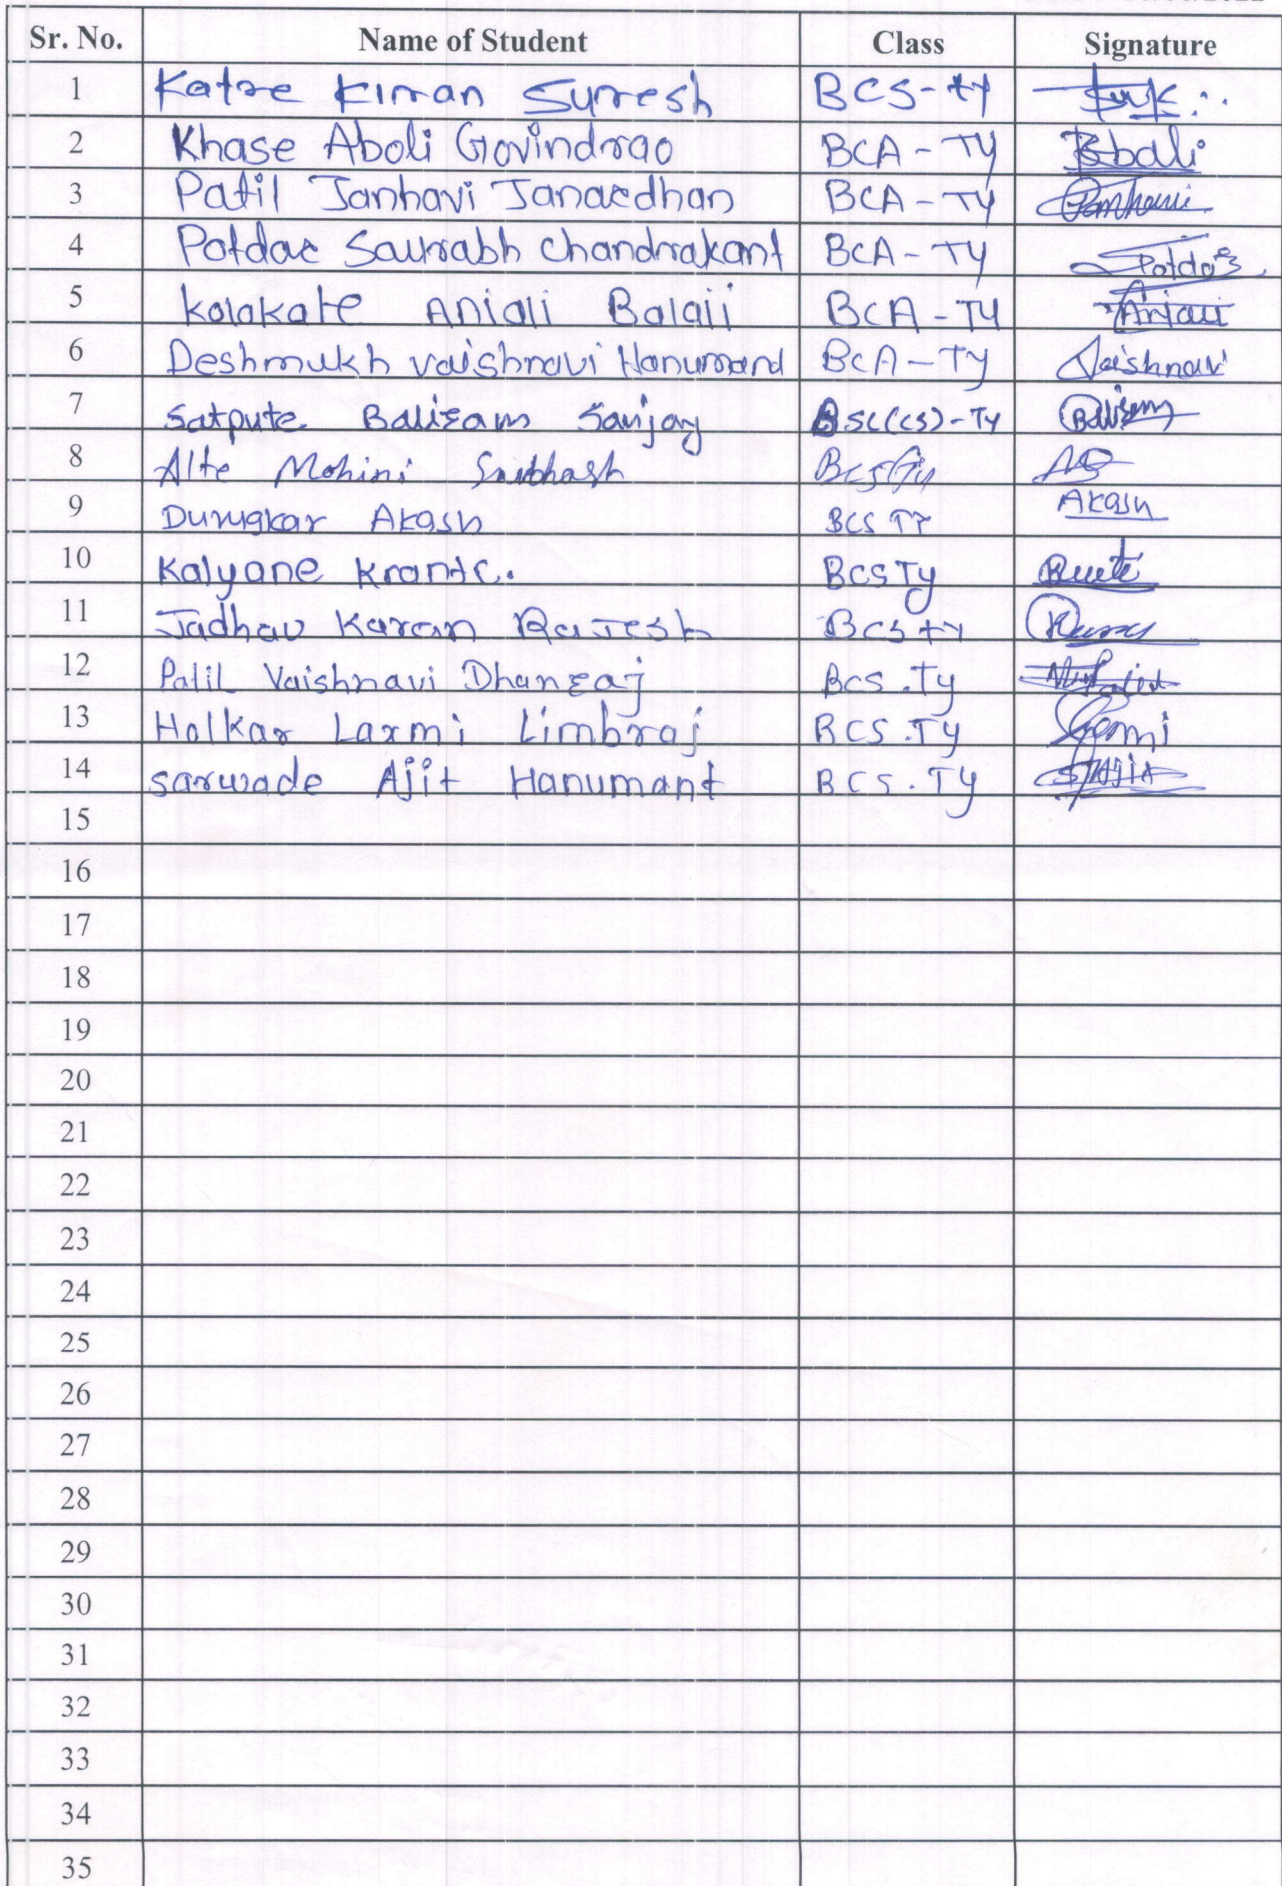 Sr. No. Name of Student Class Signature
1 Katre Kiran Suresh BCS-ty
2 Khase Aboli Govindrao BCA - TY Bbali
3 Patil Janhavi Janardhan BCA - TY Janhavi
4 Potdar Saurabh Chandrakant BCA - TY Potdar
5 Kolakate Anjali Balaji BCA - TY Anjali
6 Deshmukh Vaishnavi Hanumand BCA - TY Vaishnavi
7 Satpute Baliram Sanjay BSC(CS)-TY Baliram
8 Alte Mohini Subhash BCS
9 Durugkar Akash BCS TY Akash
10 Kalyane BCS Ty
11 Jadhav Karan Rajesh BCS ty
12 Patil Vaishnavi Dhanraj BCS .Ty
13 Holkar Laxmi Limbraj BCS .TY
14 Sarwade Ajit Hanumant BCS . TY
15
16
17
18
19
20
21
22
23
24
25
26
27
28
29
30
31
32
33
34
35